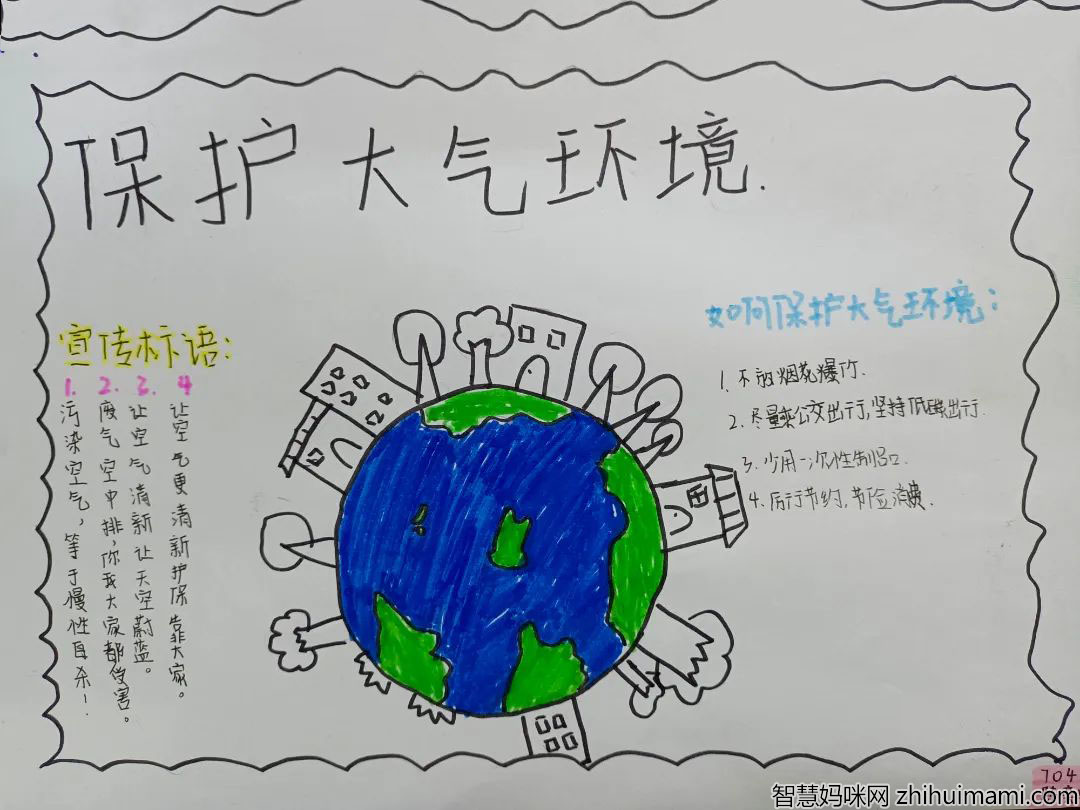 保护大气环境.
宣传标语:
1. 2. 3. 4
污染空气,等于慢性自杀!
废气空中排,你我大家都受害。
让空气清新让天空蔚蓝。
让空气更清新护保靠大家。
如何保护大气环境:
1. 不放烟花爆竹.
2. 尽量乘公交出行,坚持低碳出行.
3. 少用一次性制品.
4. 厉行节约,节俭消费.
704
智慧妈咪网 zhihuimami.com